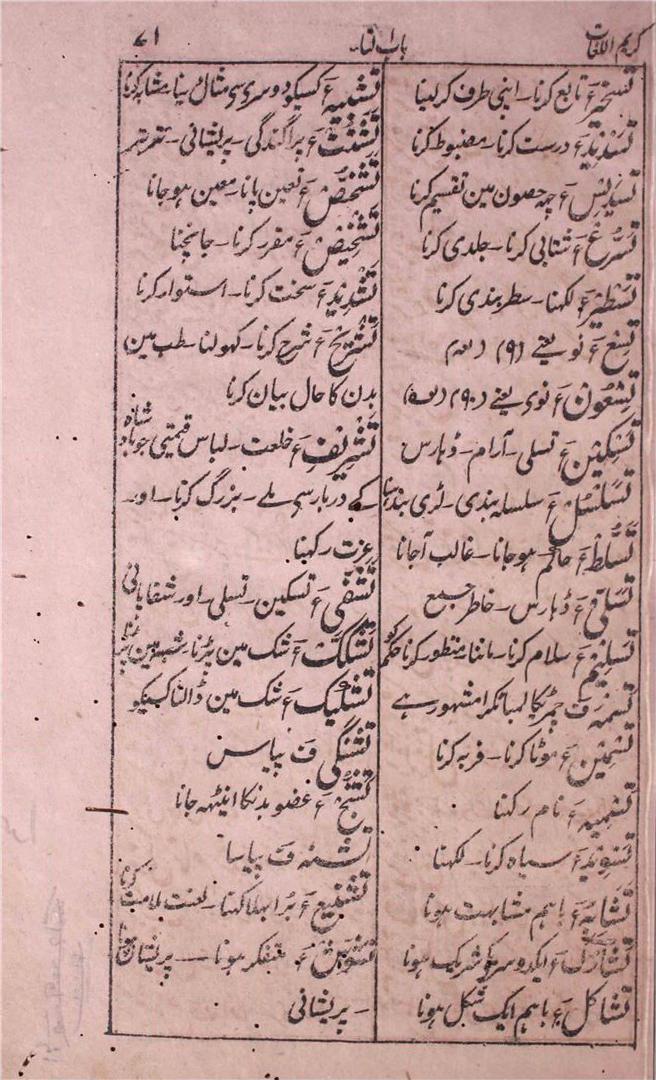 کریم اللغات باب التا ۷۱
تسخیر ء تابع کرنا ۔ اپنی طرف کرلینا
تسدید ء درست کرنا ۔ مضبوط کرنا
تسدیس ء چہہ حصون مین تقسیم کرنا
تسرع ء شتابی کرنا ۔ جلدی کرنا
تسطیر ء لکہنا ۔ سطربندی کرنا
تسع ء نو یعنے (۹)
تسعون ء نوی یعنے (۹۰)
تسکین ء تسلی ۔ آرام ۔ ڈہارس
تسلسل ء سلسلہ بندی ۔ لڑی بندہنا
تسلط ء حاکم ہوجانا ۔ غالب آجانا
تسلی ء ڈہارس ۔ خاطر جمع
تسلیم ء سلام کرنا ۔ ماننا منظور کرنا حکم کو
تسمہ ف چمڑیکا لمبا ٹکڑا مشہور ہے
تسمین ء موٹا کرنا ۔ فربہ کرنا
تسمیہ ء نام رکہنا
تسوید ء سیاہ کرنا ۔ لکہنا
تشابہ ء باہم مشابہت ہونا
تشارک ء ایکدوسریکو شریک ہونا
تشاکل ء باہم ایک شکل ہونا
تشبیہ ء کسیکو دوسری سی مثال دینا مشابہ کرنا
تشتت ء پراگندگی ۔ پریشانی ۔ تتر بتر
تشخص ء تعین پانا ۔ معین ہوجانا
تشخیص ء مقرر کرنا ۔ جانچنا
تشدید ء سخت کرنا ۔ استوار کرنا
تشریح ء شرح کرنا ۔ کہولنا ۔ طب مین
بدن کا حال بیان کرنا
تشریف ء خلعت ۔ لباس قیمتی جو بادشاہ
کے دربار سی ملے ۔ بزرگ کرنا ۔ اور
عزت رکہنا
تشفی ء تسکین ۔ تسلی ۔ اور شفا پانی
تشکک ء شک مین پڑنا ۔ شبہہ مین پڑنا
تشکیک ء شک مین ڈالنا کسیکو
تشنگی ف پیاس
تشنج ء عضو بدنکا اینٹہہ جانا
تشنہ ف پیاسا
تشنیع ء برا بہلا کہنا ۔ لعنت ملامت کرنا
تشویش ء متفکر ہونا ۔ پریشان ہونا
۔ پریشانی